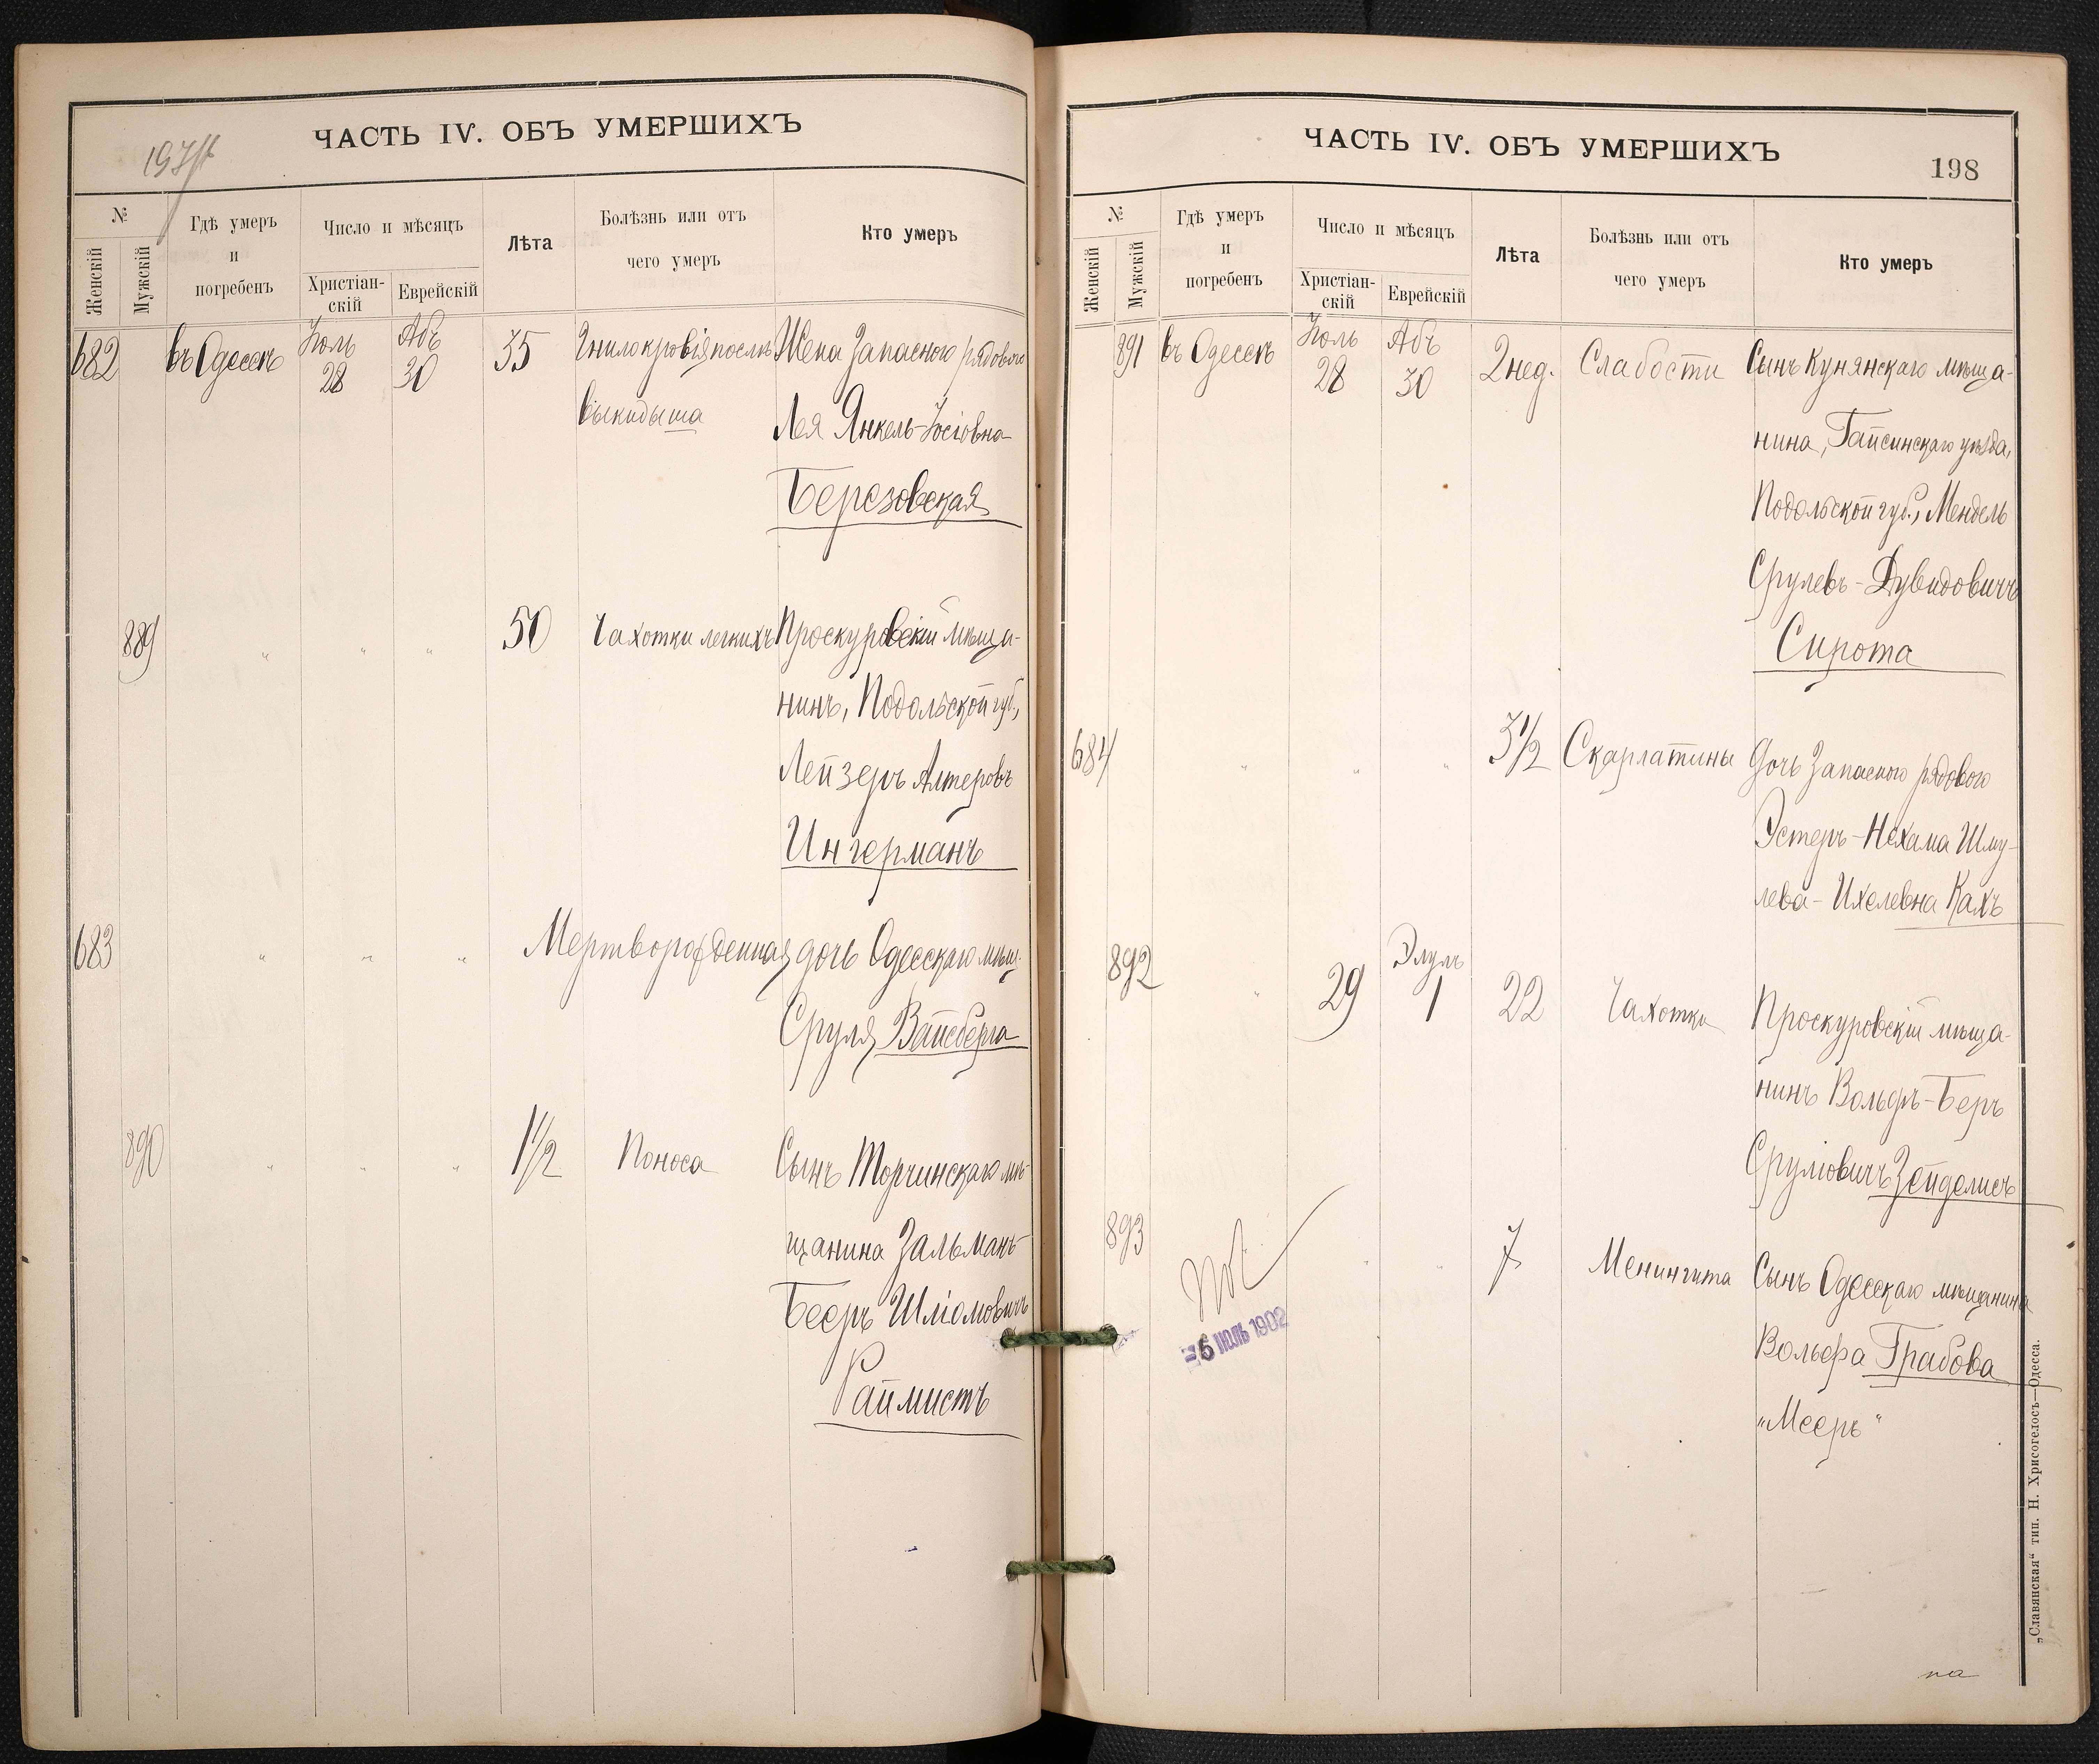 ЧАСТЬ IV. ОБЪ УМЕРШИХЪ
№
Женскій
Мужскій
Гдѣ умеръ
и
погребенъ
Число и мѣсяцъ
Христіан-
скій
Еврейскій
Лѣта
Болѣзнь или отъ
чего умеръ
Кто умеръ
682 въ Одессѣ Іюль 28 Абъ 30 35 Гнилокровія послѣ Жена запасного рядового
выкидыша Лея Янкель-Іосіовна
Березовская
889 " " " 50 Чахотки легкихъ Проскуровскій мѣща-
нинъ, Подольской губ.,
Лейзеръ Алтеровъ
Ингерманъ
683 " " " Мертворожденная дочь Одесскаго мѣщ.
Сруля Вайсберга
890 " " " 1 1/2 Поноса Сынъ Торчинскаго мѣ-
щанина Зальманъ-
Бееръ Шліомовичъ
Раймистъ
ЧАСТЬ IV. ОБЪ УМЕРШИХЪ
198
№
Женскій
Мужскій
Гдѣ умеръ
и
погребенъ
Число и мѣсяцъ
Христіан-
скій
Еврейскій
Лѣта
Болѣзнь или отъ
чего умеръ
Кто умеръ
891 въ Одессѣ Іюль 28 Абъ 30 2 нед. Слабости Сынъ Кунянскаго мѣща-
нина, Гайсинскаго уѣзда,
Подольской губ., Мендель
Срулевъ-Дувидовичъ
Сирота
684 " " " 3 1/2 Скарлатины Дочь запасного рядового
Эстеръ-Нехама Шму-
лева-Ихелевна Кахъ
892 " 29 Элулъ 1 22 Чахотка Проскуровскій мѣща-
нинъ Вольфъ-Беръ
Сруліовичъ Зейделисъ
893 " " 7 Менингита Сынъ Одесскаго мѣщанина
Вольфа Грабова
"Мееръ"
6 ІЮЛЬ 1902
„Славянская" тип. Н. Хрисогелосъ—Одесса.